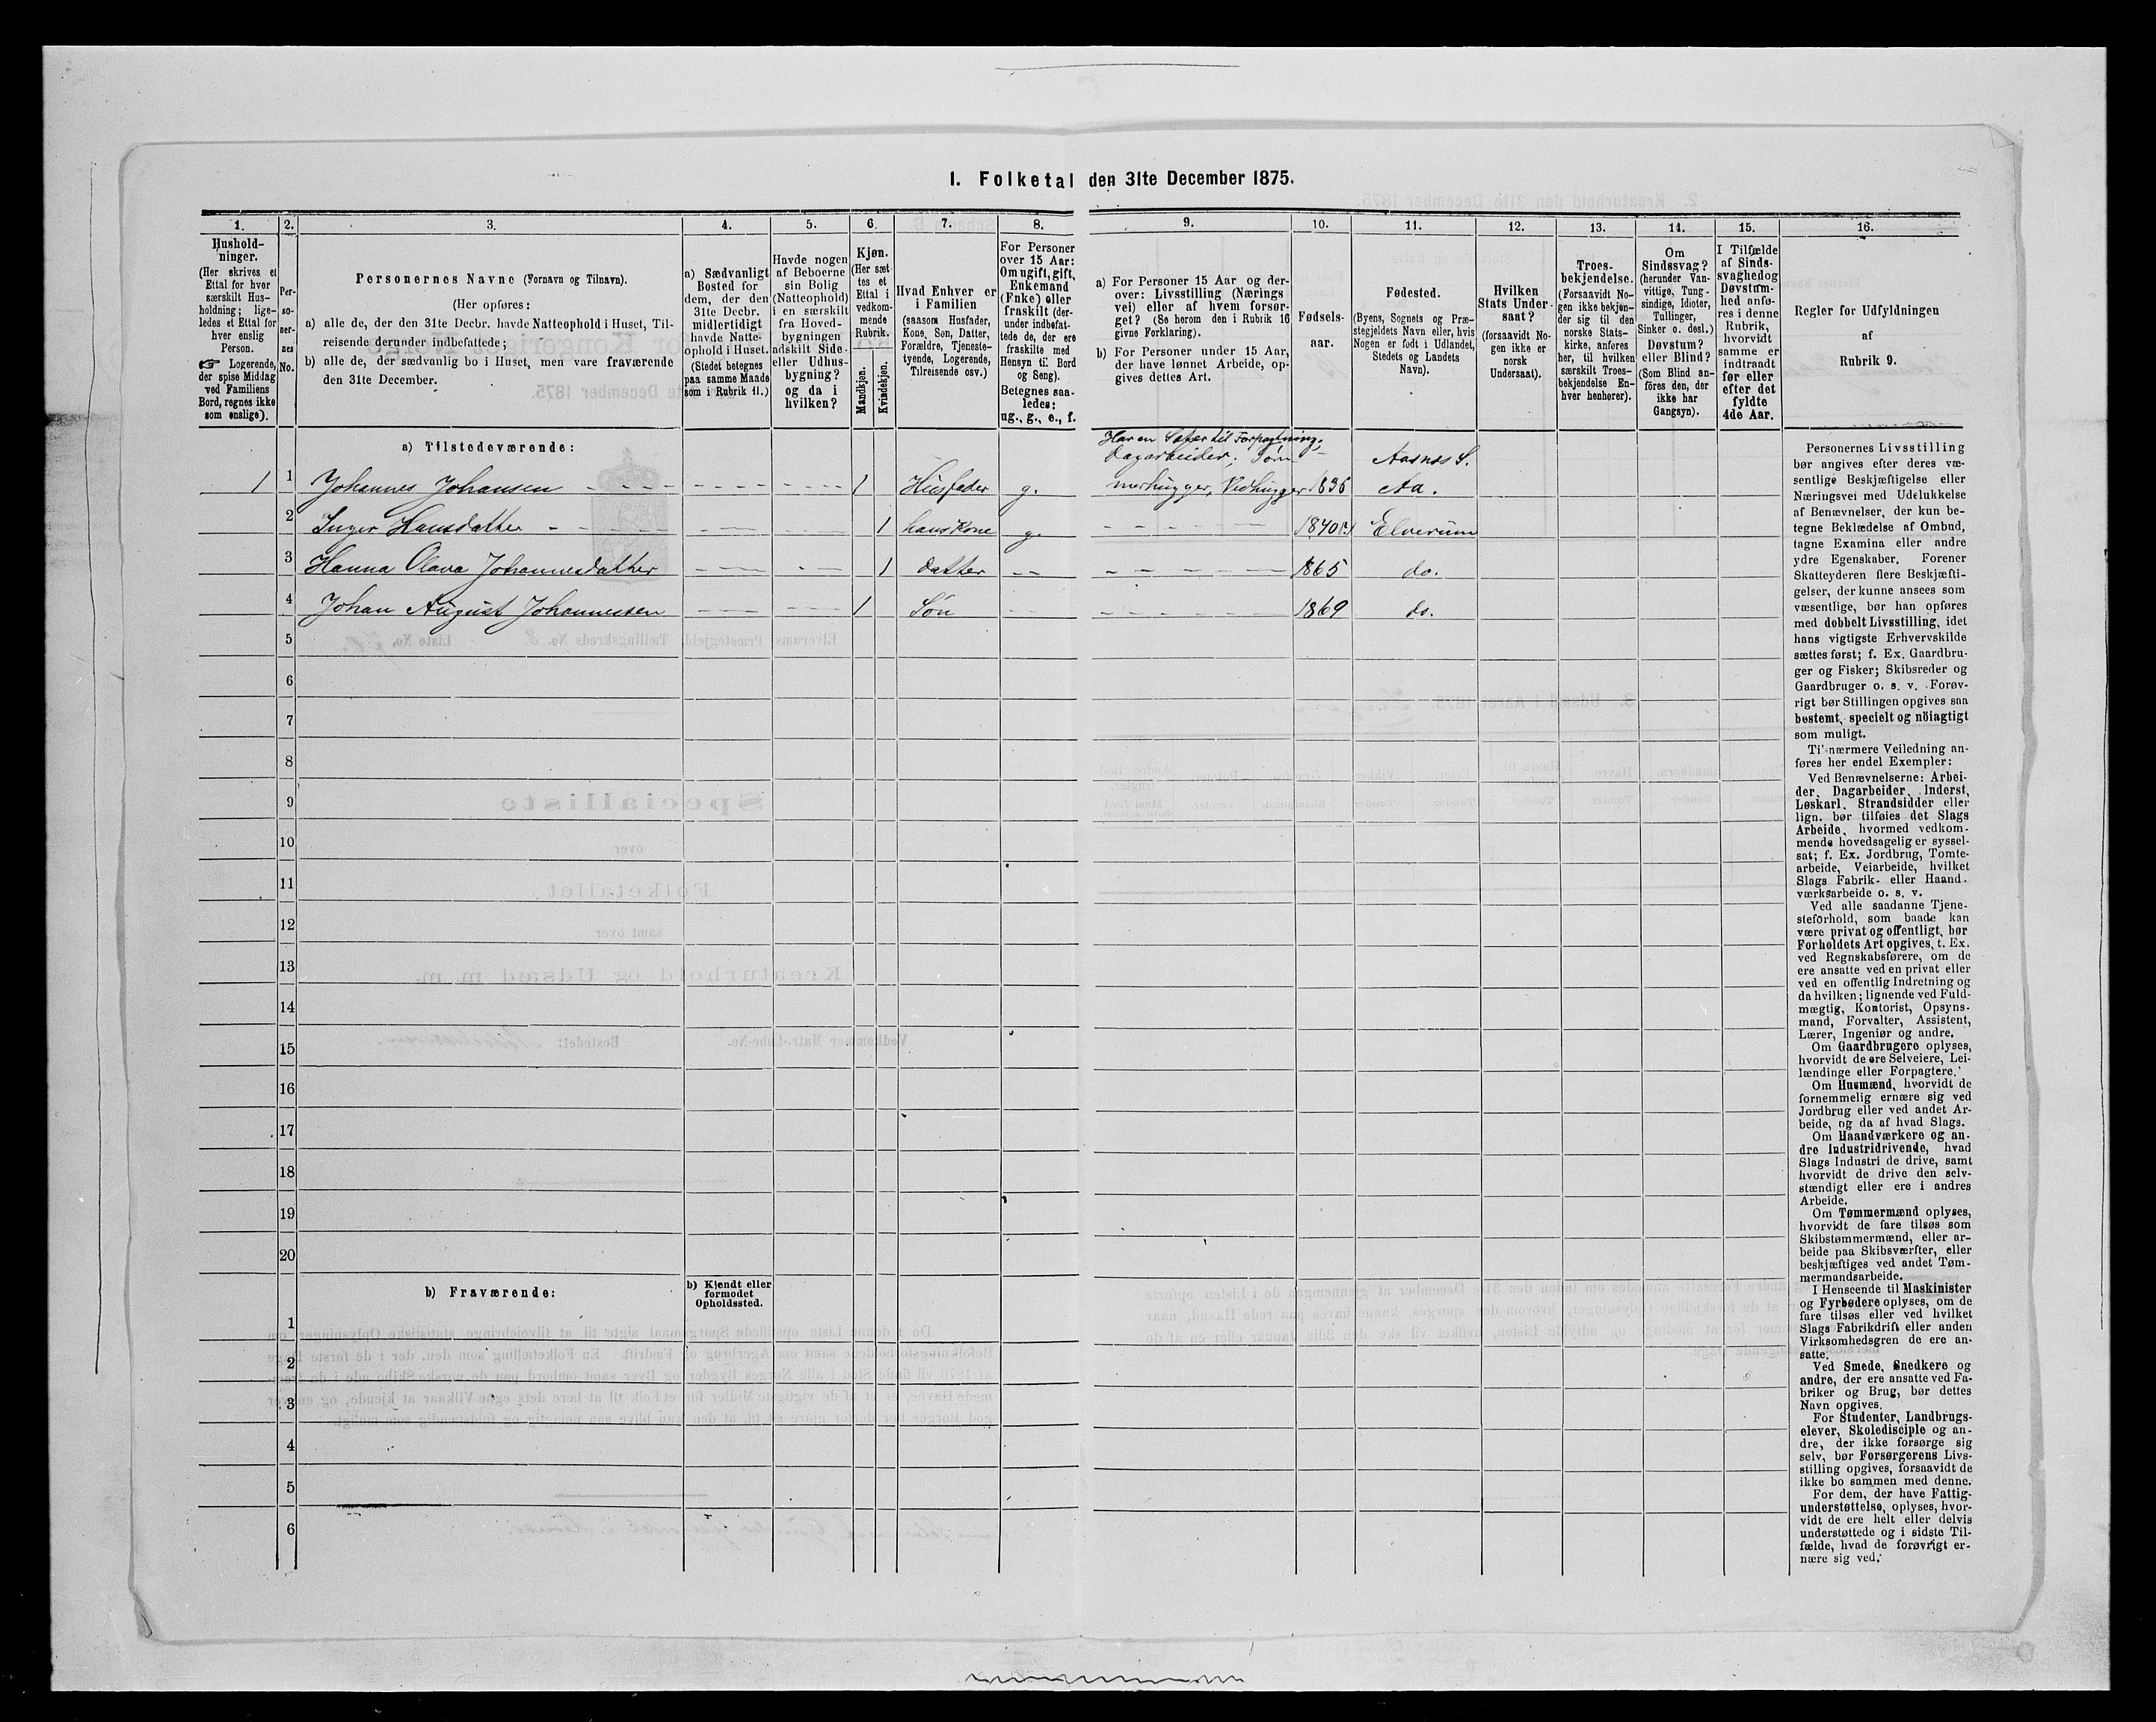 I. Folketal den 31te December 1875.
1.
Hushold-
ninger.
(Her skrives et
Ettal for hver
særskilt Hus-
holdning; lige-
ledes et Ettal for
hver enslig
Person.
☞ Logerende,
der spise Middag
ved Familiens
Bord, regnes ikke
som enslige).
2.
Per-
so-
ner-
nes
No.
3.
Personernes Navne (Fornavn og Tilnavn).
(Her opføres:
a) alle de, der den 31te Decbr. havde Natteophold i Huset, Til-
reisende derunder indbefattede;
b) alle de, der sædvanlig bo i Huset, men vare fraværende
den 31te December.
4.
a) Sædvanligt
Bosted for
dem, der den
31te Decbr.
midlertidigt
havde Natte-
ophold i Huset.
(Stedet betegnes
paa samme Maade
som i Rubrik 11.)
5.
Havde nogen
af Beboerne
sin Bolig
(Natteophold)
i en særskilt
fra Hoved-
bygningen
adskilt Side-
eller Udhus-
bygning?
og da i
hvilken?
6.
Kjøn.
(Her sæt-
tes et
Ettal i
vedkom-
mende
Rubrik.
Mandkjøn.
Kvindekjøn.
7.
Hvad Enhver er
i Familien
(saasom Husfader,
Kone, Søn, Datter,
Forældre, Tjeneste-
tyende, Logerende,
Tilreisende osv.)
8.
For Personer
over 15 Aar:
Om ugift, gift,
Enkemand
(Enke) eller
fraskilt (der-
under indbefat-
tede de, der ere
fraskilte med
Hensyn til Bord
og Seng).
Betegnes saa-
ledes:
ug., g., e., f.
9.
a) For Personer 15 Aar og der-
over: Livsstilling (Nærings
vei) eller af hvem forsør-
get? (Se herom den i Rubrik 16
givne Forklaring).
b) For Personer under 15 Aar,
der have lønnet Arbeide, op-
gives dettes Art.
10.
Fødsels-
aar.
11.
Fødested.
(Byens, Sognets og Præ-
stegjeldets Navn eller, hvis
Nogen er født i Udlandet,
Stedets og Landets
Navn).
12.
Hvilken
Stats Under-
saat?
(forsaavidt No-
gen ikke er
norsk
Undersaat).
13.
Troes-
bekjendelse.
(Forsaavidt No-
gen ikke bekjen-
der sig til den
norske Stats-
kirke, anføres
her, til hvilken
særskilt Troes-
bekjendelse En-
hver henhører).
14.
Om
Sindssvag?
(herunder Van-
vittige, Tung-
sindige, Idioter,
Tullinger,
Sinker o. desl.)
Døvstum?
eller Blind?
(Som Blind an-
føres den, der
ikke har
Gangsyn).
15.
I Tilfælde
af Sinds-
svaghed og
Døvstum-
hed anfø-
res i denne
Rubrik,
hvorvidt
samme er
indtraadt
før eller
efter det
fyldte
4de Aar.
16.
Regler for Udfyldningen
af
Rubrik 9.
a) Tilstedeværende:
Har en Sæter til Forpagtning,
Dagarbeider, Tøm- Aasnes S.
1 1 Johannes Johansen 1 Husfader g. merhugger, Vedhugger 1836 Aa.
2 Inger Hansdatter 1 hans Kone g. 1840 Elverum
3 Hanna Olava Johannesdatter 1 Datter 1865 do.
4 Johan August Johannessen 1 Søn 1869 do.
5
6
7
8
9
10
11
12
13
14
15
16
17
18
19
20
b) Fraværende:
b) Kjendt eller
formodet
Opholdssted.
1
2
3
4
5
6
Personernes Livsstilling
bør angives efter deres væ-
sentlige Beskjæftigelse eller
Næringsvei med Udelukkelse
af Benævnelser, der kun be-
tegne Beklædelse af Ombud,
tagne Examina eller andre
ydre Egenskaber. Forener
Skatteyderen flere Beskjæfti-
gelser, der kunne ansees som
væsentlige, bør han opføres
med dobbelt Livsstilling, idet
hans vigtigste Erhvervskilde
sættes først; f. Ex. Gaardbru-
ger og Fisker; Skibsreder og
Gaardbruger o. s. v. Forøv-
rigt bør Stillingen opgives saa
bestemt, specielt og nöiagtigt
som muligt.
Til nærmere Veiledning an-
føres her endel Exempler:
Ved Benævnelserne: Arbei-
der, Dagarbeider, Inderst,
Løskarl, Strandsidder eller
lign. bør tilføies det Slags
Arbeide, hvormed vedkom-
mende hovedsagelig er syssel-
sat; f. Ex. Jordbrug, Tomte-
arbeide, Veiarbeide, hvilket
Slags Fabrik- eller Haand-
værksarbeide o. s. v.
Ved alle saadanne Tjene-
steforhold, som baade kan
være privat og offentligt, bør
Forholdets Art opgives, t. Ex.
ved Regnskabsførere, om de
ere ansatte ved en privat eller
ved en offentlig Indretning og
da hvilken; lignende ved Fuld-
mægtig, Kontorist, Opsyns-
mand, Forvalter, Assistent,
Lærer, Ingeniør og andre.
Om Gaardbrugere oplyses,
hvorvidt de ere Selveiere, Lei-
lændinge eller Forpagtere.
Om Husmænd, hvorvidt de
fornemmelig ernære sig ved
Jordbrug eller ved andet Ar-
beide, og da af hvad Slags.
Om Haandværkere og an-
dre Industridrivende, hvad
Slags Industri de drive, samt
hvorvidt de drive den selv-
stændigt eller ere i andres
Arbeide.
Om Tømmermænd oplyses,
hvorvidt de fare tilsøs som
Skibstømmermænd, eller ar-
beide paa Skibsværfter, eller
beskjæftiges ved andet Tøm-
mermandsarbeide.
I Henseende til Maskinister
og Fyrbødere oplyses, om de
fare tilsøs eller ved hvilket
Slags Fabrikdrift eller anden
Virksomhedsgren de ere an-
satte.
Ved Smede, Snedkere og
andre, der ere ansatte ved Fa-
briker og Brug, bør dettes
Navn opgives.
For Studenter, Landbrugs-
elever, Skoledisciple og an-
dre, der ikke forsørge sig
selv, bør Forsørgerens Livs-
stilling opgives, forsaavidt de
ikke bo sammen med denne.
For dem, der have Fattig-
understøttelse, oplyses, hvor-
vidt de ere helt eller delvis
understøttede og i sidste Til-
fælde, hvad de forøvrigt er-
nære sig ved.